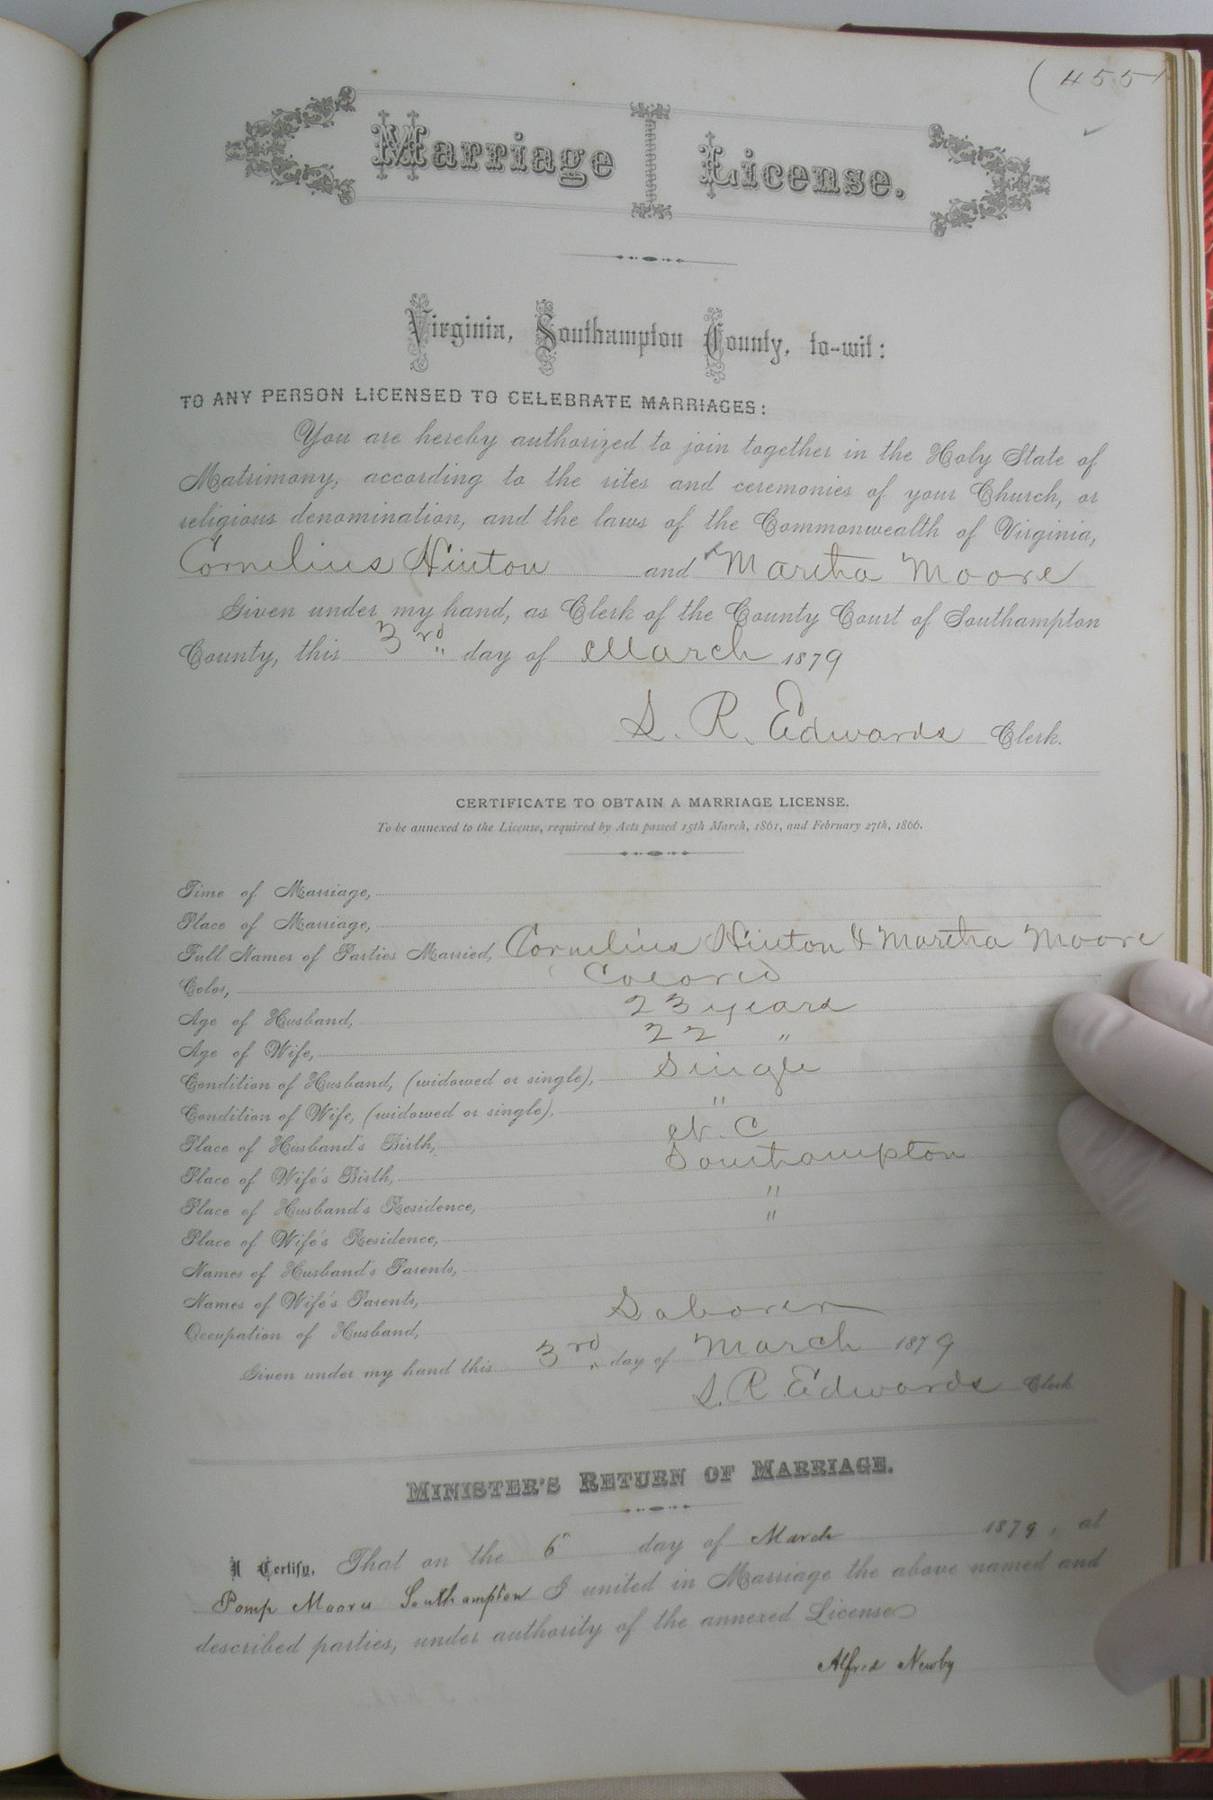 (455
Marriage License.
Virginia, Southampton County, to-wit:
TO ANY PERSON LICENSED TO CELEBRATE MARRIAGES:
You are hereby authorized to join together in the Holy State of
Matrimony, according to the rites and ceremonies of your Church, or
religious denomination, and the laws of the Commonwealth of Virginia,
Cornelius Hinton and Martha Moore
Given under my hand, as Clerk of the County Court of Southampton
County, this 3rd day of March 1879
S. R. Edwards Clerk.
CERTIFICATE TO OBTAIN A MARRIAGE LICENSE.
To be annexed to the License, required by Acts passed 15th March, 1861, and February 27th, 1866.
Time of Marriage,
Place of Marriage,
Full Names of Parties Married, Cornelius Hinton & Martha Moore
Color, Colored
Age of Husband, 23 years
Age of Wife, 22 "
Condition of Husband, (widowed or single), Single
Condition of Wife, (widowed or single), "
Place of Husband's Birth, N. C
Place of Wife's Birth, Southampton
Place of Husband's Residence, "
Place of Wife's Residence, "
Names of Husband's Parents,
Names of Wife's Parents,
Occupation of Husband, Laborer
Given under my hand this 3rd day of March 1879
S. R. Edwards Clerk
MINISTER'S RETURN OF MARRIAGE.
I Certify, That on the 6" day of March 1879, at
Pomp Moores Southampton I united in Marriage the above named and
described parties, under authority of the annexed License
Alfred Newby